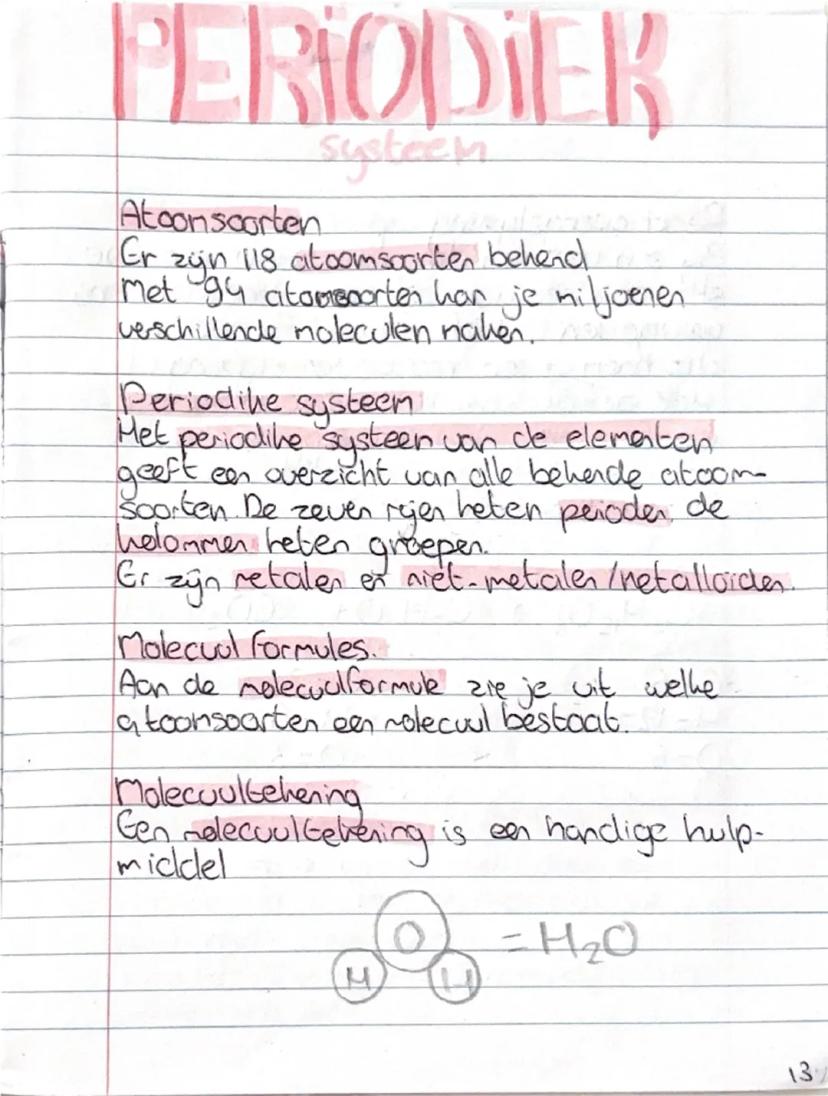 PERIODIEK
systeem
Atoomsoorten
Er zijn 118 atoomsoorten bekend
Met 94 atoomsoorten kan je miljoenen
verschillende moleculen maken.
Periodike systeem
Het periodike systeem van de elementen
geeft een overzicht van alle bekende atoom-
soorten. De zeven rijen heten perioden, de
kolommen heten groepen.
Er zijn metalen en niet-metalen/metalloiden.
Molecuul formules.
Aan de molecuulformule zie je uit welke
atoomsoorten een molecuul bestaat.
Molecuultekening
Een molecuultekening is een handige hulp-
middel
O = H₂O
H H
13